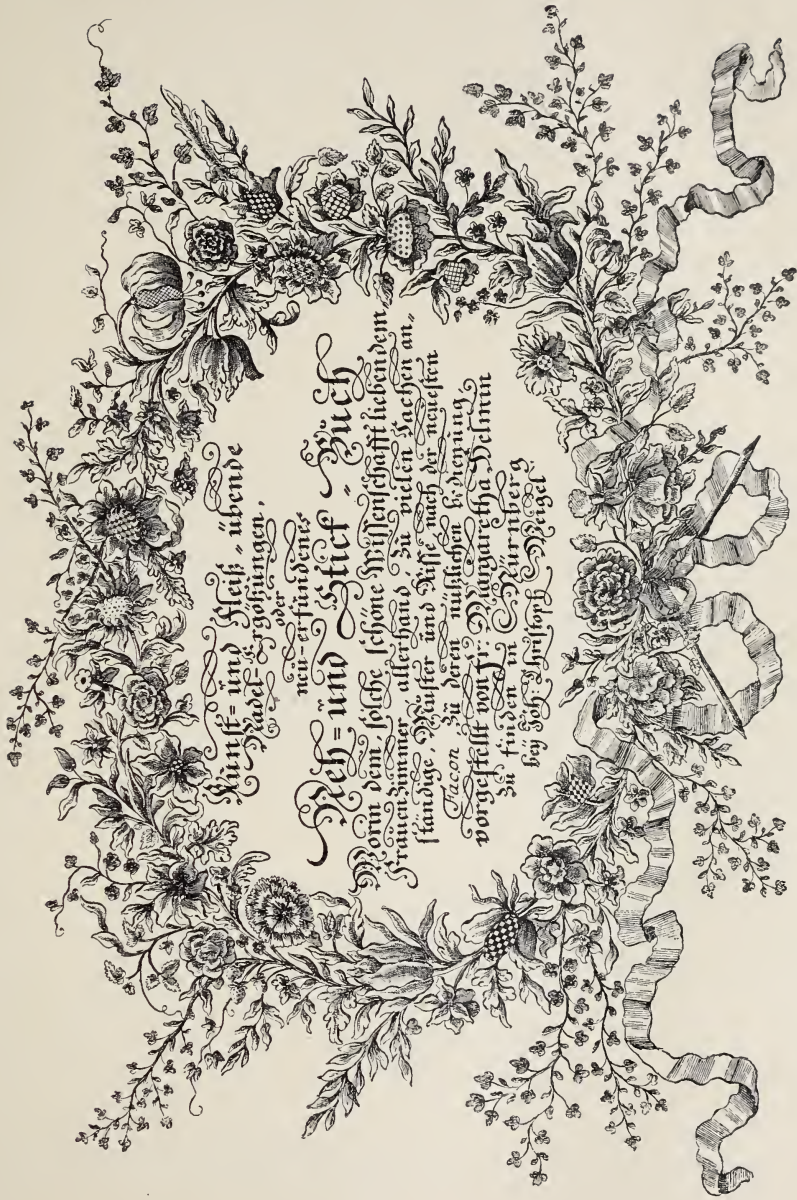 Kunst= und Fleiß=übende
Nadel=Ergötzungen,
oder
neu=erfundenes
Neh= und Stick=Buch
Worin dem, solche schöne Wissenschafft liebendem
Frauenzimmer allerhand, zu vielen Sachen an=
ständige, Muster und Risse nach der neuesten
Facon zu deren nützlichen bedienung,
vorgestellt von Fr: Margaretha Helmin
zu finden in Nürnberg
bey Joh: Christoph Weigel.